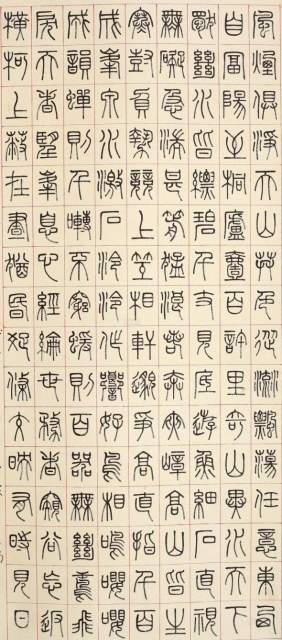 風煙俱淨天山共色從流飄蕩任意東西
自富陽至桐廬壹百許里奇山異水天下
獨絕水皆縹碧千丈見底遊魚細石直視
無礙急湍甚箭猛浪若奔夾嶂高山皆生
寒樹負勢競上互相軒邈爭高直指千百
成峯泉水激石泠泠作響好鳥相鳴嚶嚶
成韻蟬則千囀不窮猨則百叫無絕鳶飛
戾天者望峯息心經綸世務者窺谷忘返
橫柯上蔽在晝猶昏疏條交映有時見日